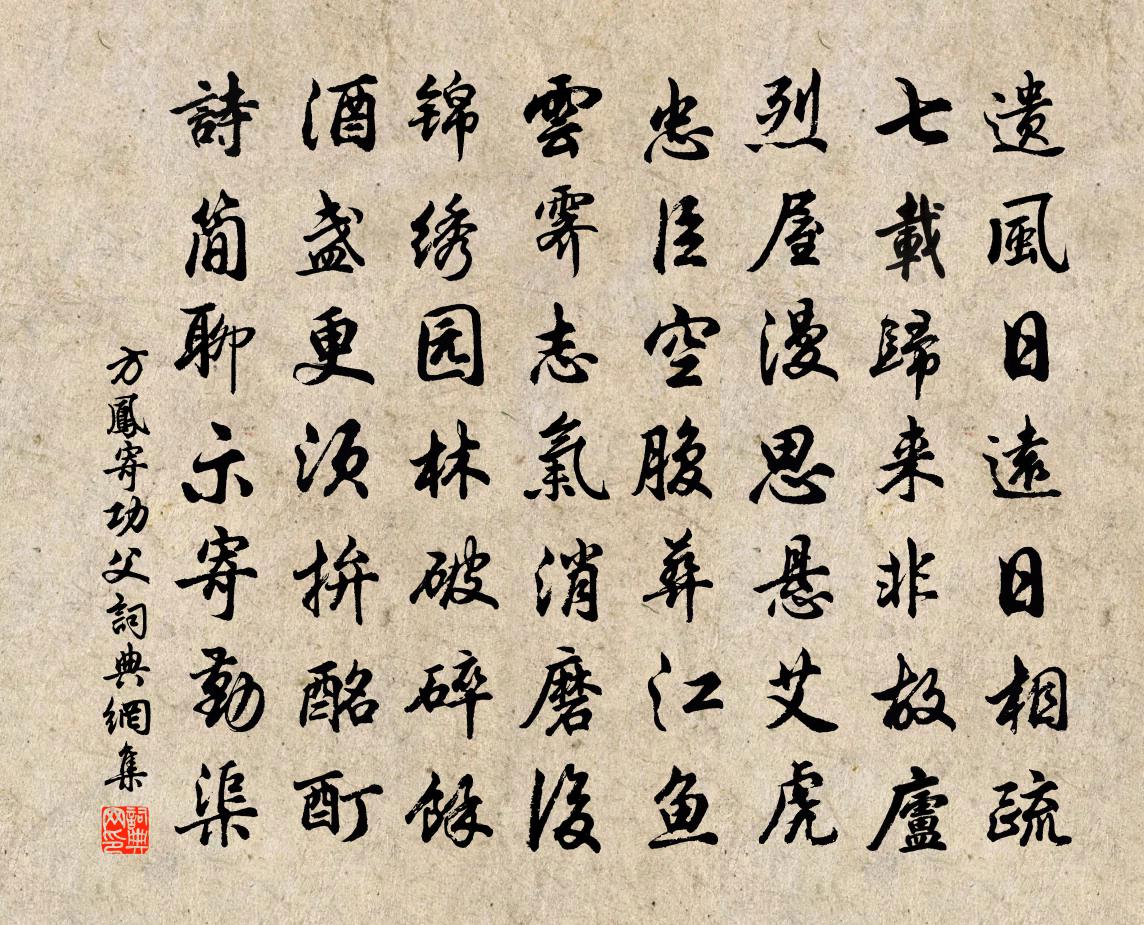 遗風日遠日相疏
七載歸来非故廬
烈屋漫思悬艾虎
忠臣空腹葬江鱼
雲霁志氣消磨後
锦绣园林破碎餘
酒盏更须拚酩酊
詩简聊示寄勤渠
方鳳寄功父詞典網集
詞典网印